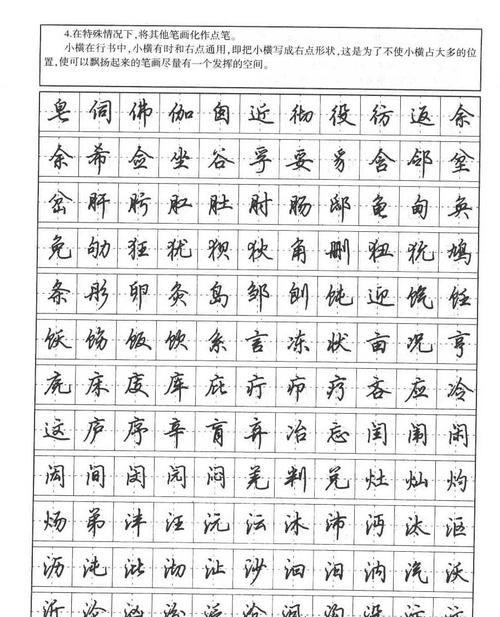 4.在特殊情况下,将其他笔画化作点笔。
小横在行书中,小横有时和右点通用,即把小横写成右点形状,这是为了不使小横占大多的位
置,使可以飘扬起来的笔画尽量有一个发挥的空间。
皂伺佛伽囱近彻役彷返余
余希佥坐谷孚妥豸含邻坌
岔肝肟肛肚肘肠邸龟甸奂
免劬狂犹狈狄角删狃犹鸠
条彤卵灸岛邹刨饨迎饩饪
饫饬饭饮系言冻状亩况亨
庑床废库庇疔疖疗吝应冷
这庐序辛肓弃冶忘闰闱闲
闳间闵闶闷羌判兑灶灿灼
炀弟沣汪沅沄冰沛沔汰沤
沥沌沘沏沚沙汩汨汭汽沃